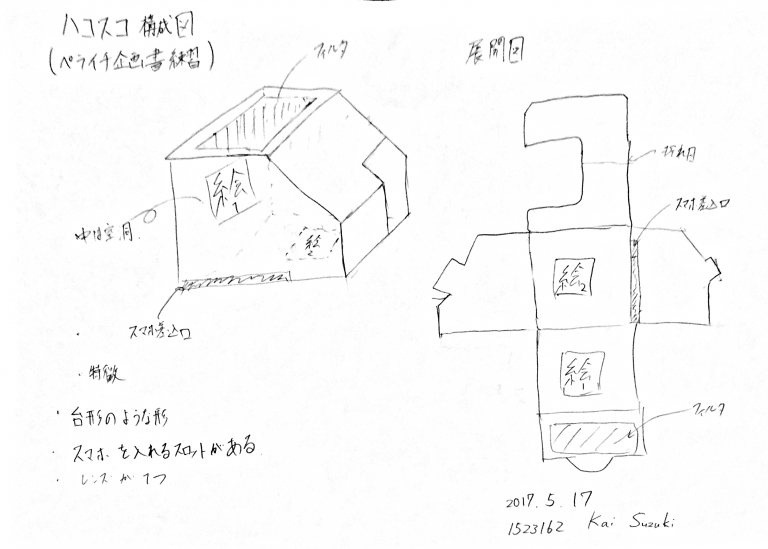 ハコスコ構成図
(ペライチ企画書練習)
フィルタ
絵1
中は空洞
絵2
スマホ差込口
・特徴
・台形のような形
・スマホを入れるスロットがある
・レンズが1つ
展開図
折れ目
スマホ差込口
絵2
絵1
フィルタ
2017.5.17
1523162 Kai Suzuki